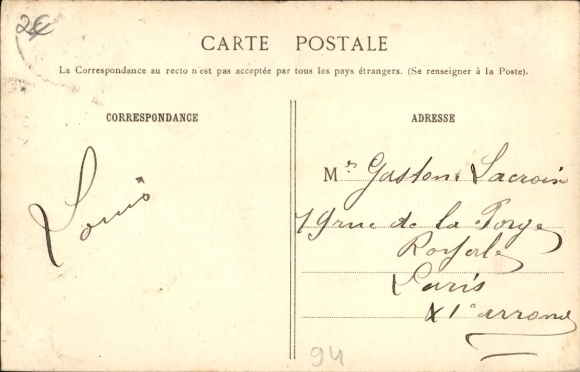 2€
CARTE POSTALE
La Correspondance au recto n'est pas acceptée par tous les pays étrangers. (Se renseigner à la Poste).
CORRESPONDANCE
ADRESSE
Louis
Mr Gaston Lacroix
79 rue de la Folye
Royale
Paris
XIe arrond
94